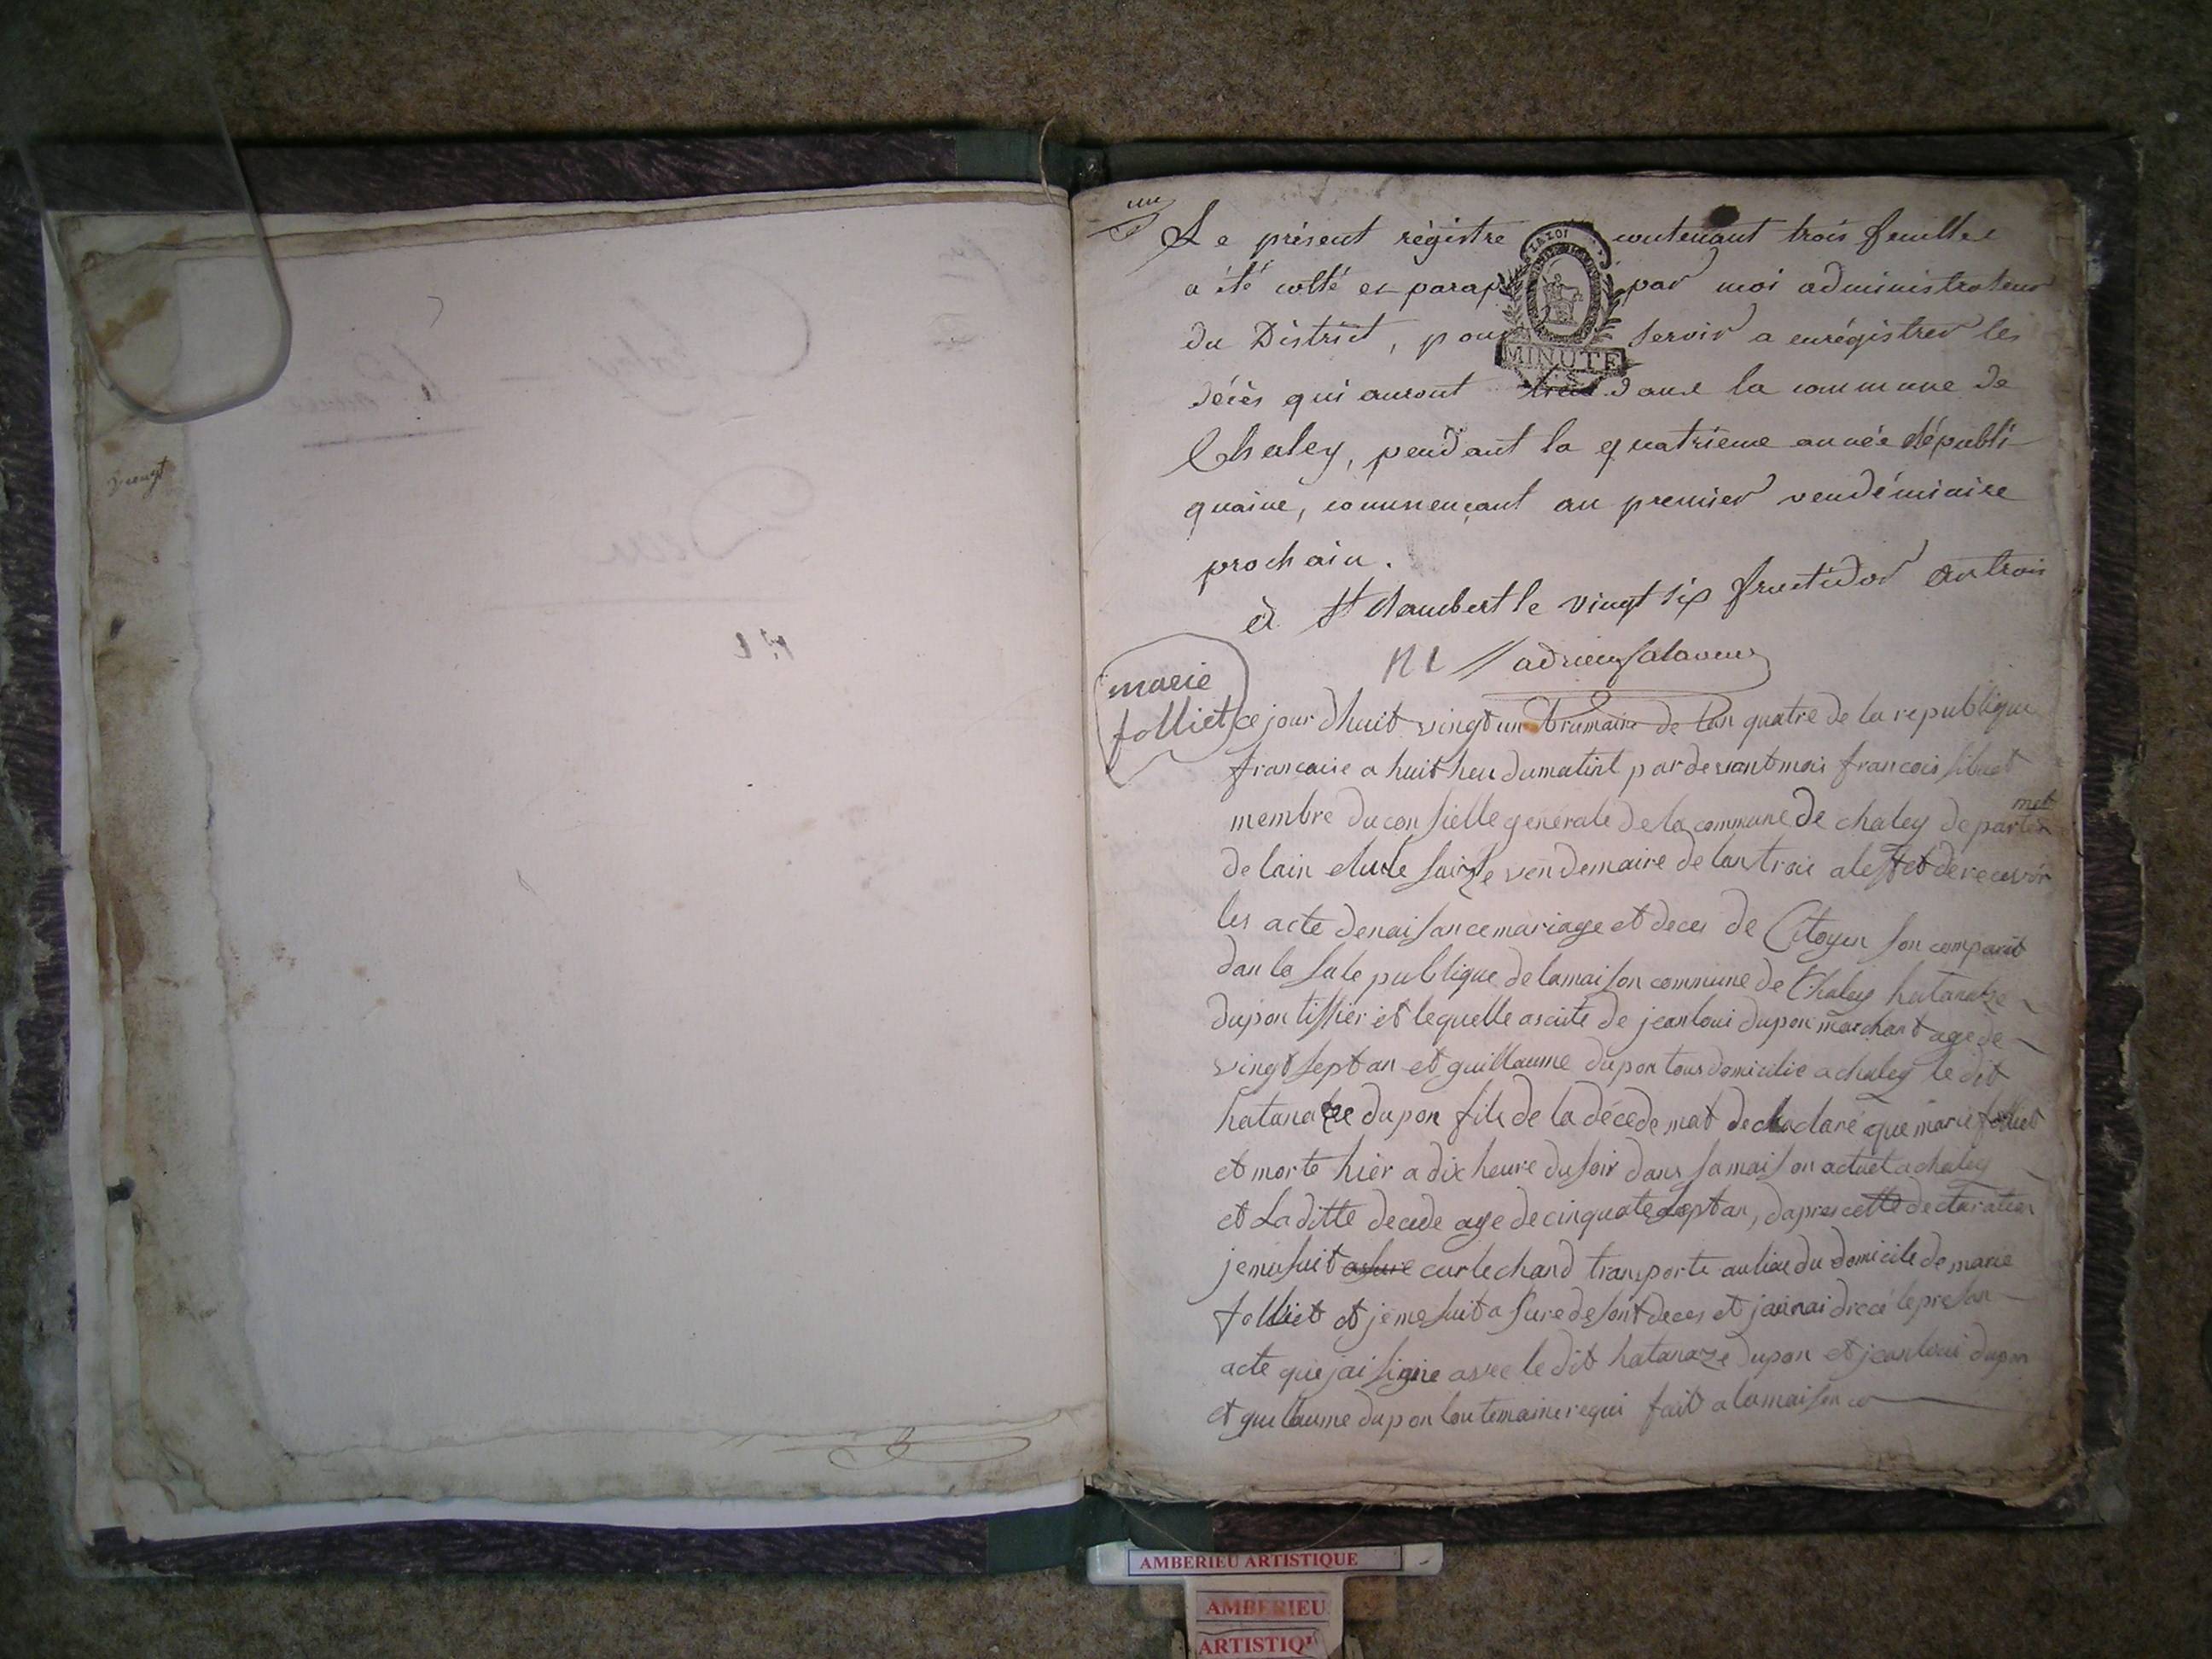 vingt
Le présent régistre contenant trois feuilles
a été cotté et paraphé par moi administrateur
du District, pour servir a enrégistrer les
décès qui auront lieu dans la commune de
Chaley, pendant la quatrieme année républi-
quaine, commençant au premier vendémiaire
prochain.
à St Rambert le vingt six fructidor an trois
N 1
marie
folliet
ce jour dhuit vingt un brumaire de lan quatre de la republique
francaise a huit heu du matint par devant moi francois
membre du consielle générale de la commune de chaley departemet
de lain elu le saize vendemaire de lan trois a leffet de recevoir
les acte de naisance mariage et deces de Citoyen son comparut
dan la sale publique de la maison commune de Chaley hatanaze
dupon tissier et lequelle asiste de jean loui dupon marchant age de
vingt sept an et guillaume dupon tous domicilie a chaley le dit
hatanaze dupon fils de la décede mat declaré que marie folliet
et morte hier a dix heure du soir dans sa maison a chaley
et La ditte decede age de cinquate sept an, dapres cette declaration
je me suit sur le chand transporte au lieu du domicile de marie
folliet et je me suit asure de sont deces et jan nai drecé le presan
acte que jai signe avec le dit hatanaze dupon et jean loui dupon
et guillaume dupon tou temain requi fait a la maison co
MINUTE
AMBERIEU ARTISTIQUE
AMBERIEU
ARTISTIQU